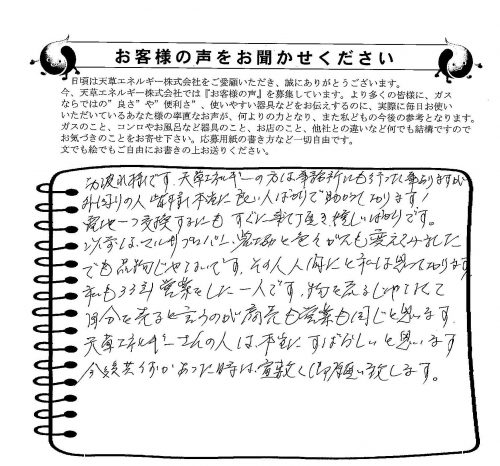 お客様の声をお聞かせください
日頃は天草エネルギー株式会社をご愛顧いただき、誠にありがとうございます。
今、天草エネルギー株式会社では『お客様の声』を募集しています。より多くの皆様に、ガス
ならではの"良さ"や"便利さ"、使いやすい器具などをお伝えするのに、実際に毎日お使い
いただいているあなた様の率直なお声が、何よりの力となり、また私どもの今後の参考となります。
ガスのこと、コンロやお風呂など器具のこと、お店のこと、他社との違いなど何でも結構ですので
お気づきのことをお寄せ下さい。応募用紙の書き方など一切自由です。
文でも絵でもご自由にお書きの上お送りください。
お疲れ様です。天草エネルギーの方は事務所にも行った事ありますが
外回りの人 皆 本当に良い人ばかりで助かっております!
電池一つ交換するにも すぐに来て頂き 嬉しいばかりです。
以前は、マルキプロパン、 と色々ガスも変えてみました
でも品物じゃないです。その人、人間だと私は思っております
私も33年 営業をした一人です。物を売るじゃなくて
自分を売ると言うのが商売も営業も同じと思います。
天草エネルギーさんの人は本当にすばらしいと思います
今後共何かあった時は宜敷く御願い致します。